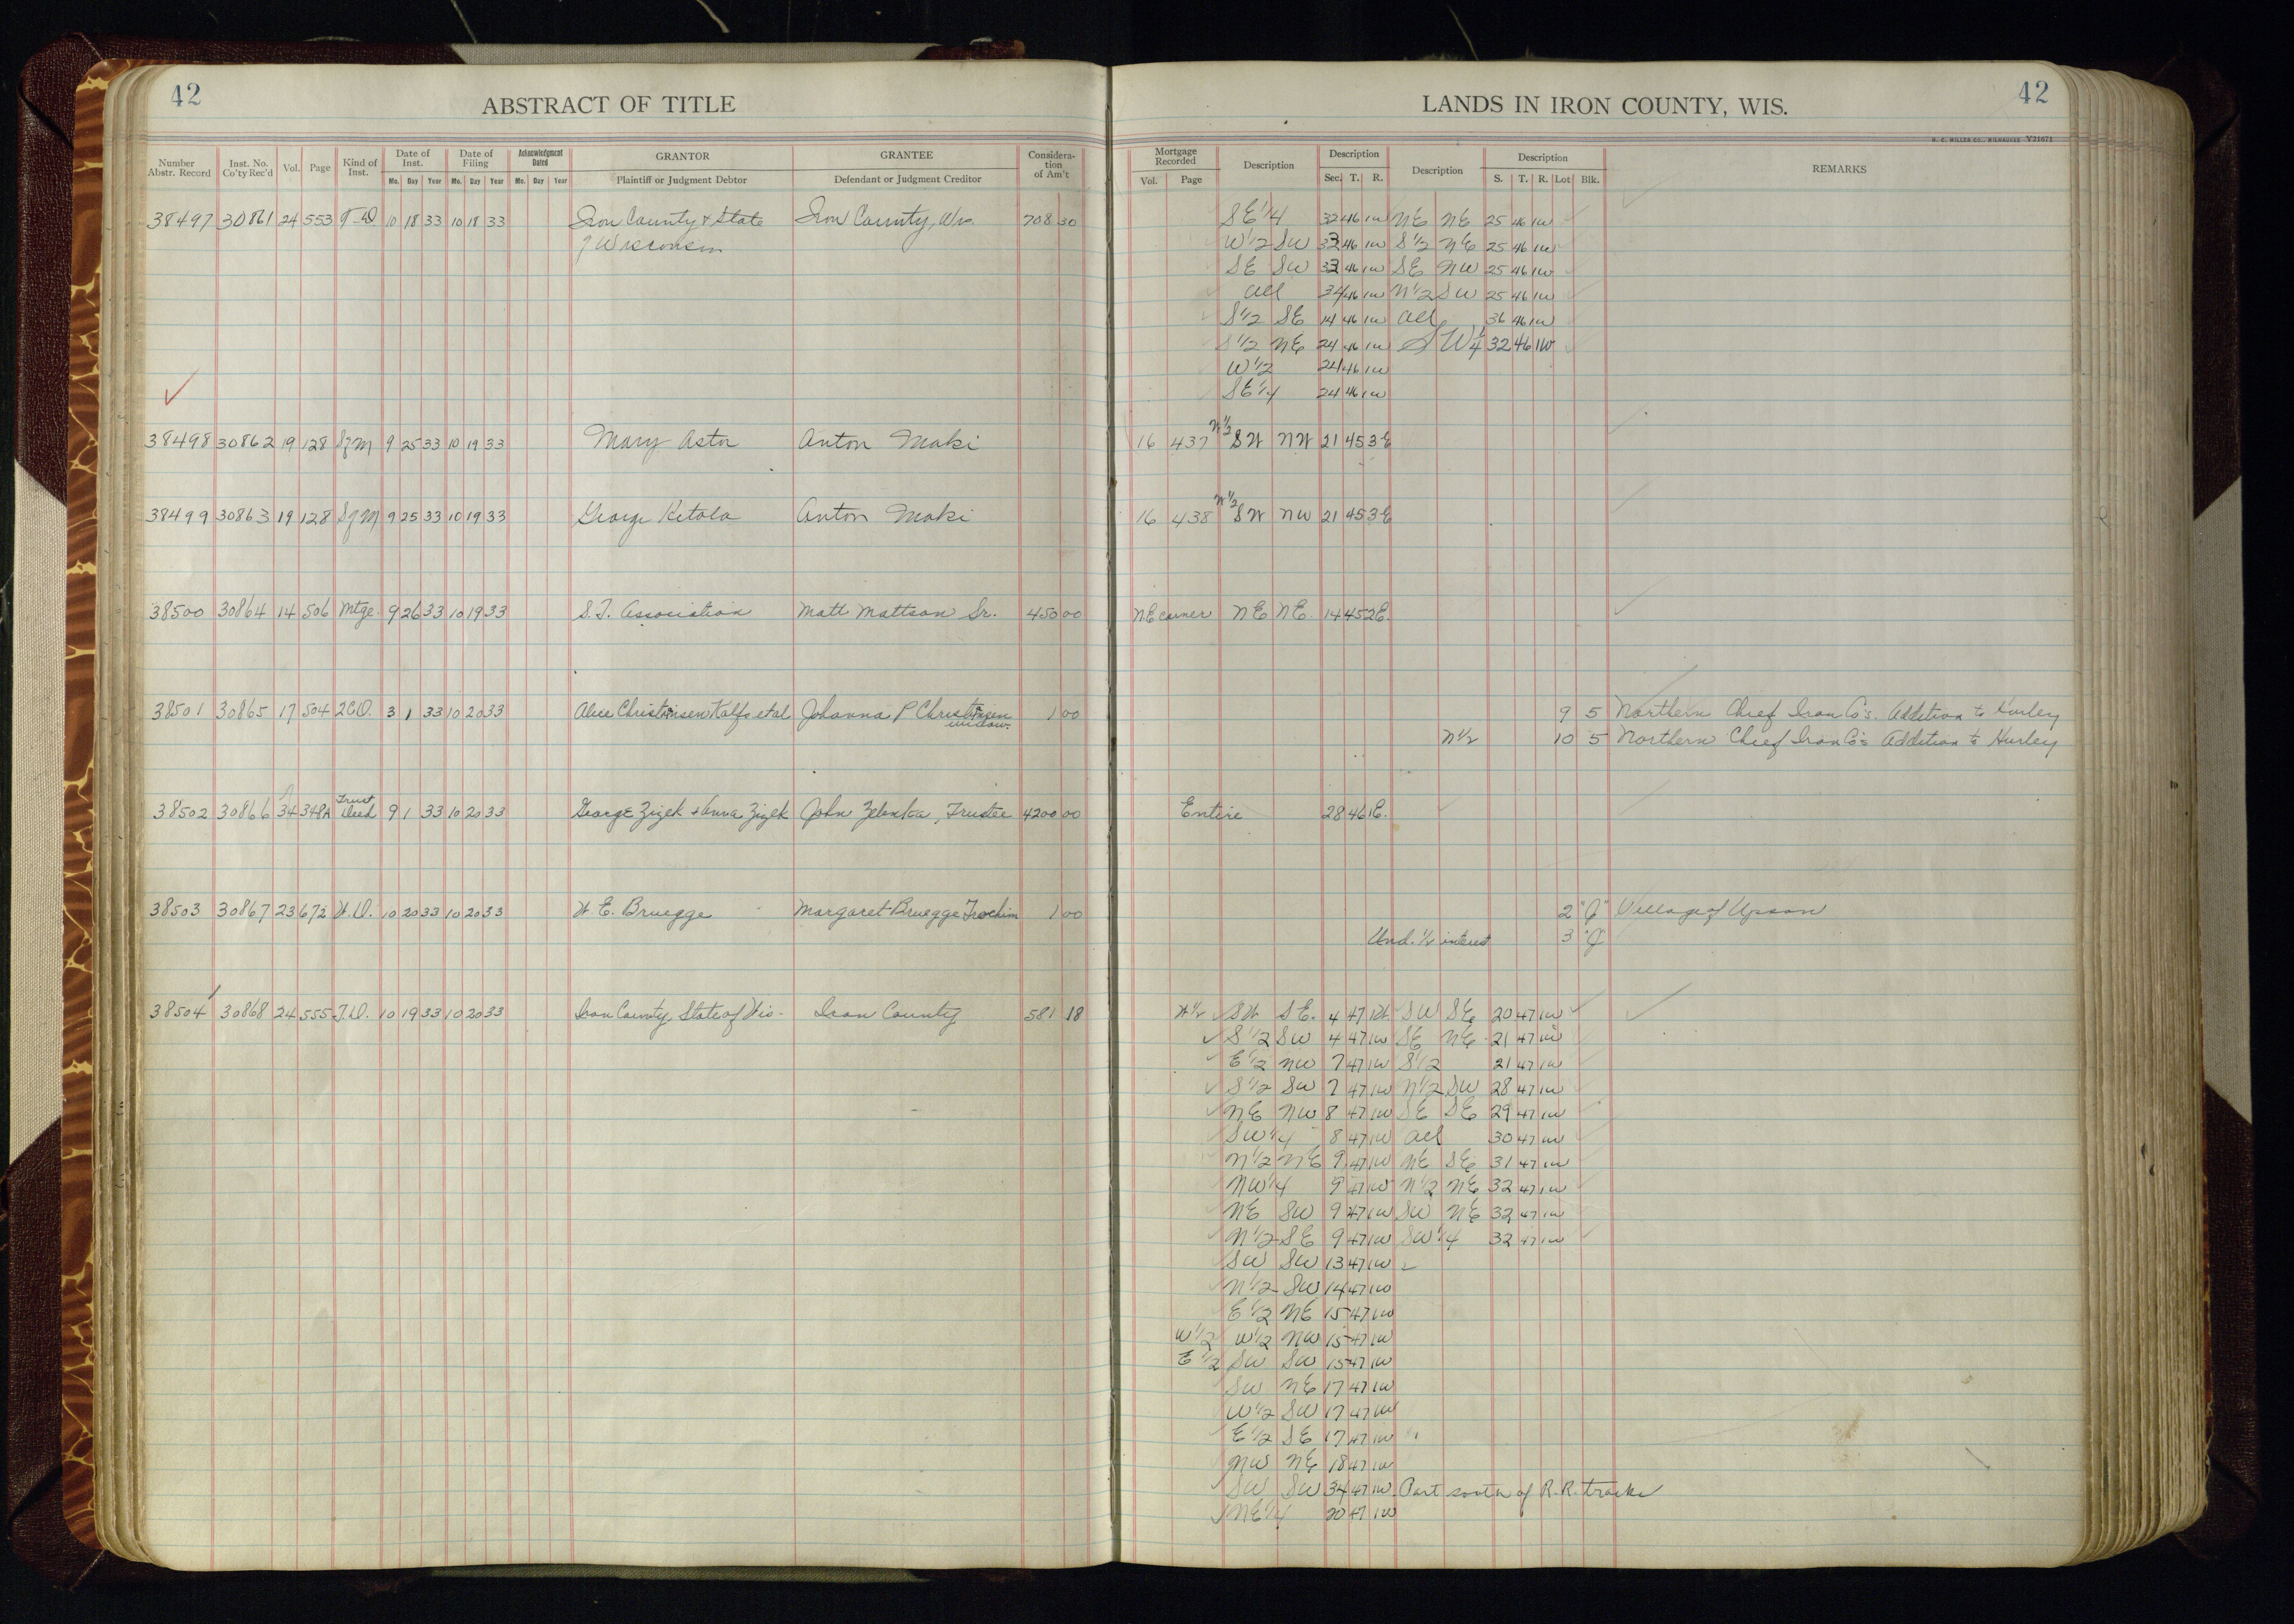 42
ABSTRACT OF TITLE
Number Abstr. Record Inst. No. Co'ty Rec'd Vol. Page Kind of Inst. Date of Inst. Date of Filing Acknowledgment Dated GRANTOR GRANTEE Consideration of Am't
Mo. Day Year Mo. Day Year Mo. Day Year Plaintiff or Judgment Debtor Defendant or Judgment Creditor
38497 30861 24 553 T-D 10 18 33 10 18 33 Iron County & State Iron County, Wis 708 30
of Wisconsin
38498 30862 19 128 Sfm 9 25 33 10 19 33 Mary Aston Anton Maki
38499 30863 19 128 Sfm 9 25 33 10 19 33 George Ketola Anton Maki
38500 30864 14 506 Mtge. 9 26 33 10 19 33 S. T. Association Matt Mattson Sr. 450 00
38501 30865 17 504 2CD. 3 1 33 10 20 33 Alice Christinsen Kalfo etal Johanna P Christinsen 1 00
widow
38502 30866 34 348A Trust Deed 9 1 33 10 20 33 George Zizek & Anna Zizek John Zelenka, Trustee 4200 00
38503 30867 23 672 W.D. 10 20 33 10 20 33 W. E. Bruegge Margaret Bruegge Trochim 1 00
38504 30868 24 555 T.D. 10 19 33 10 20 33 Iron County, State of Wis. Iron County 581 18
LANDS IN IRON COUNTY, WIS.
42
H. C. MILLER CO., MILWAUKEE V21671
Mortgage Recorded Description Description Description Description REMARKS
Vol. Page Sec. T. R. S. T. R. Lot Blk.
SE 1/4 32 46 1W NE NE 25 46 1W
W 1/2 SW 33 46 1W S 1/2 NE 25 46 1W
SE SW 33 46 1W SE NW 25 46 1W
All 34 46 1W N 1/2 SW 25 46 1W
S 1/2 SE 14 46 1W All 36 46 1W
S 1/2 NE 24 46 1W SW 1/4 32 46 1W
W 1/2 24 46 1W
SE 1/4 24 46 1W
16 437 W 1/2 SW NW 21 45 3E
16 438 W 1/2 SW NW 21 45 3E
N.E corner NE NE. 14 45 2E.
9 5 Northern Chief Iron Co's. Addition to Hurley
N 1/2 10 5 Northern Chief Iron Co's Addition to Hurley
Entire 28 46 1E.
2 "J" Village of Upson
Und. 1/2 interest 3 "J"
W 1/2 SW SE. 4 47 1W SW SE 20 47 1W
S 1/2 SW 4 47 1W SE NE 21 47 1W
E 1/2 NW 7 47 1W S 1/2 21 47 1W
S 1/2 SW 7 47 1W N 1/2 SW 28 47 1W
NE NW 8 47 1W SE SE 29 47 1W
SW 1/4 8 47 1W All 30 47 1W
N 1/2 NE 9 47 1W NE SE 31 47 1W
NW 1/4 9 47 1W N 1/2 NE 32 47 1W
NE SW 9 47 1W SW NE 32 47 1W
N 1/2 SE 9 47 1W SW 1/4 32 47 1W
SW SW 13 47 1W
N 1/2 SW 14 47 1W
E 1/2 NE 15 47 1W
W 1/2 W 1/2 NW 15 47 1W
E 1/2 SW SW 15 47 1W
SW NE 17 47 1W
W 1/2 SW 17 47 1W
E 1/2 SE 17 47 1W
NW NE 18 47 1W
SW SW 34 47 1W Part south of R.R. tracks
NE 1/4 20 47 1W